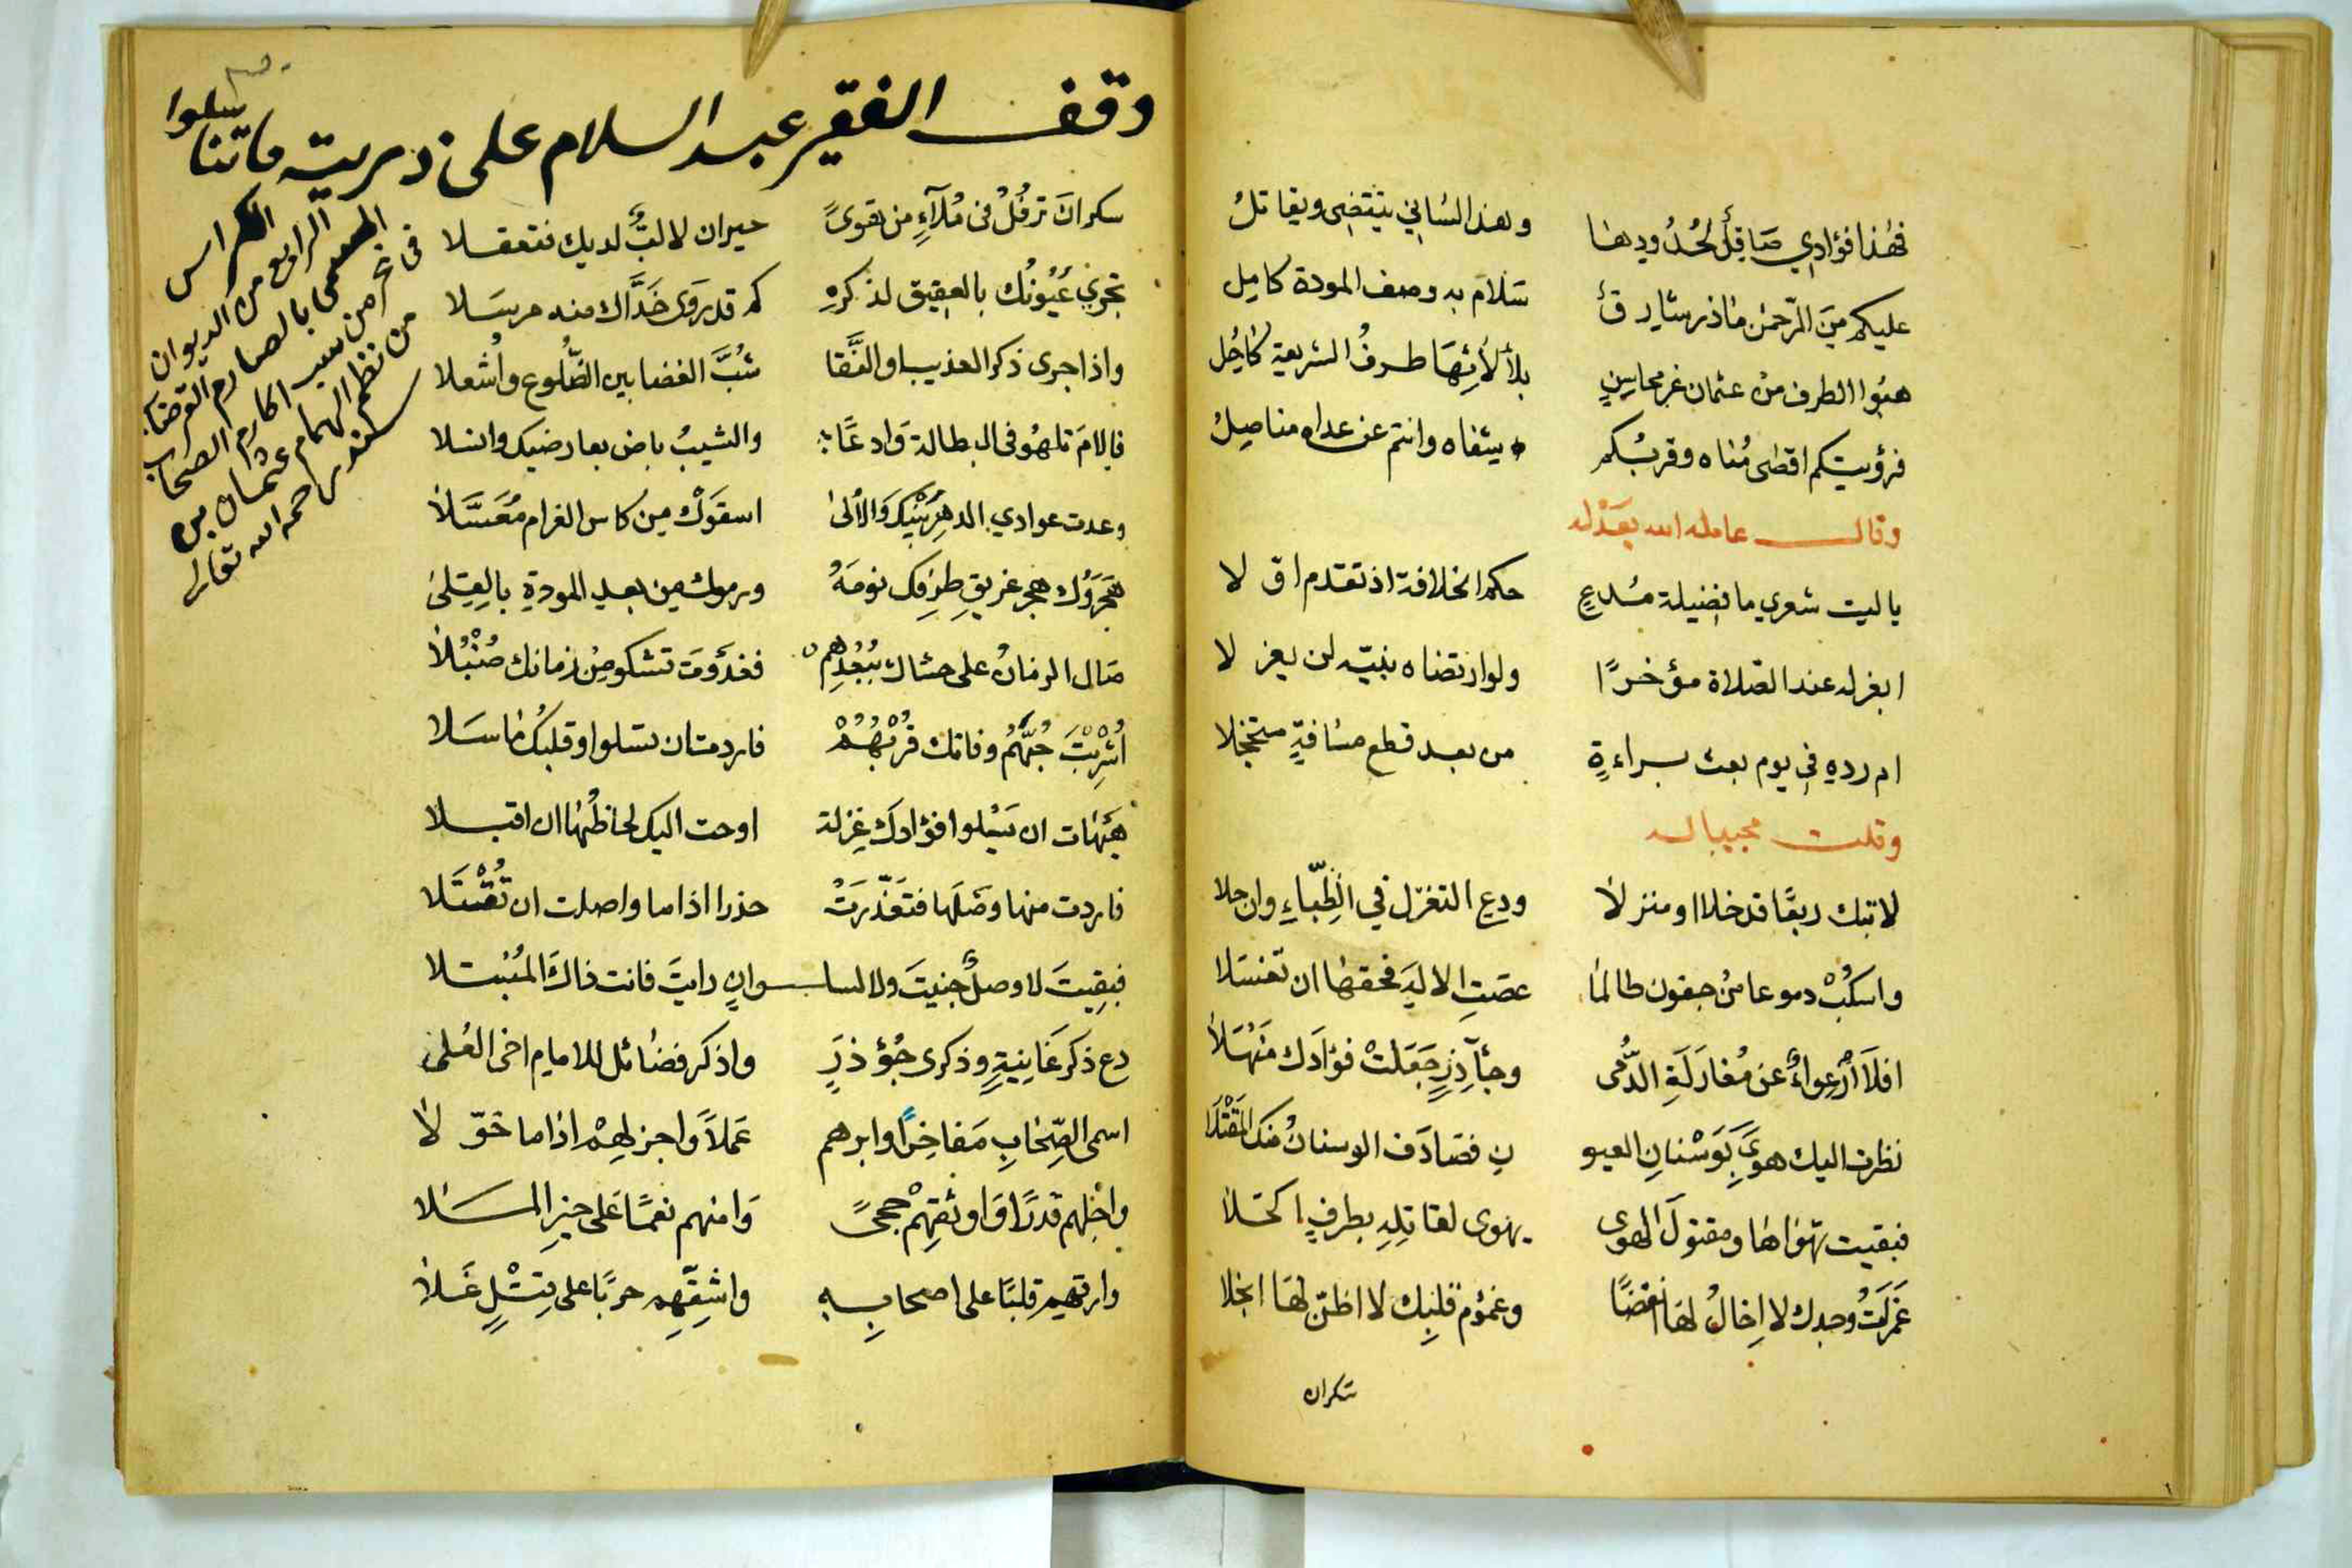 فهذا فؤادي صاقل لحدودها وهذا لساني ينتضي ويقاتل
عليكم من الرحمن ما ذر شارق سلام به وصف المودة كامل
هبوا الطرف من عثمان غر محاسن بلألائها طرف الشريعة كاحل
فرؤيتكم اقصى مناه وقربكم شفاه وانتم عن عداه مناصل
وقال عامله الله بعدله
يا ليت شعري ما فضيلة مدع حكم الخلافة اذ تقدم او لا
ابغزله عند الصلاة مؤخرا ولو ارتضاه نبيه لن يعزلا
ام رده في يوم بعث براءة من بعد قطع مسافة متخجلا
وقلت مجيبا له
لا تبك ربعا قد خلا او منزلا ودع التغزل في الظباء وان حلا
واسكب دموعا من جفون طالما عصت الاله فحقها ان تغسلا
افلا ارعواء عن مغازلة الدمى وجآذر جعلت فؤادك منهلا
نظرت اليك هوى بوسنان العيو ن فصادف الوسنان منك المقتلا
فبقيت تهواها ومقتول الهوى يهوى لقاتله بطرف اكحلا
غمزات وجدك لا اخال لها انقضا وغموم قلبك لا اظن لها انجلا
سكران
وقف الفقير عبد السلام على ذرية ماتنا سلوا
سكران ترفل في ملآء من هوى حيران لا لب لديك فتعقلا
تجري عيونك بالعقيق لذكره كم قد روى خداك منه مرسلا
واذا جرى ذكر العذيب او النقا شب الغضا بين الضلوع واشعلا
فالام تلهو في البطالة وادعا والشيب باض بعارضيك وانسلا
وعدت عوادي الدهر بينك والالى اسقوك من كاس الغرام معسلا
هجروك هجر غريق طرفك نومه ورموك من بعد المودة بالقلى
صال الزمان على حشاك ببعدهم فغدوت تشكو من زمانك
اشربت حبهم وفاتك قربهم فاردت ان تسلوا وقلبك ما سلا
هيهات ان يسلوا فؤادك غزلة اوحت اليك لحاظها ان اقبلا
فاردت منها وصلها فتعذرت حذرا اذا ما واصلت ان تقتلا
فبقيت لا وصل جنيت ولا لسلوان رايت فانت ذاك المبتلا
دع ذكر غانية وذكرى جؤذر واذكر فضائل للامام اخى العلى
اسمى الصحاب مفاخرا وابرهم عملا واجزلهم اذا ما خولا
واجلهم قدرا واوثقهم حجى وامنهم نعما على خير الملا
وارقهم قلبا على اصحابه واشقهم حربا على قتل غلا
الكراس
الرابع من الديوان
المسمى بالصارم القرضاب
في نحر من سب اكارم الصحاب
من نظم الهمام عثمان بن
سند رحمه الله تعالى